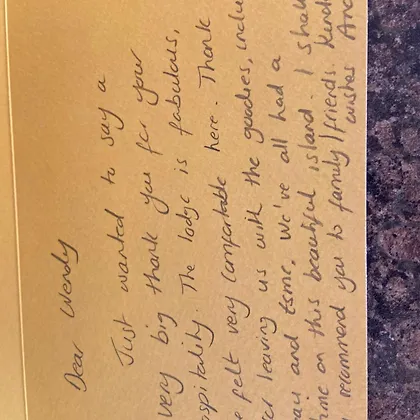 Dear Wendy
Just wanted to say a
very big thank you for your
ospitality. The lodge is fabulous,
e felt very comfortable here. Thank
leaving us with the goodies, inclu
and Esme, we've all had a
me on this beautiful island. I shall
recommend you to family/friends. Kind
wishes And